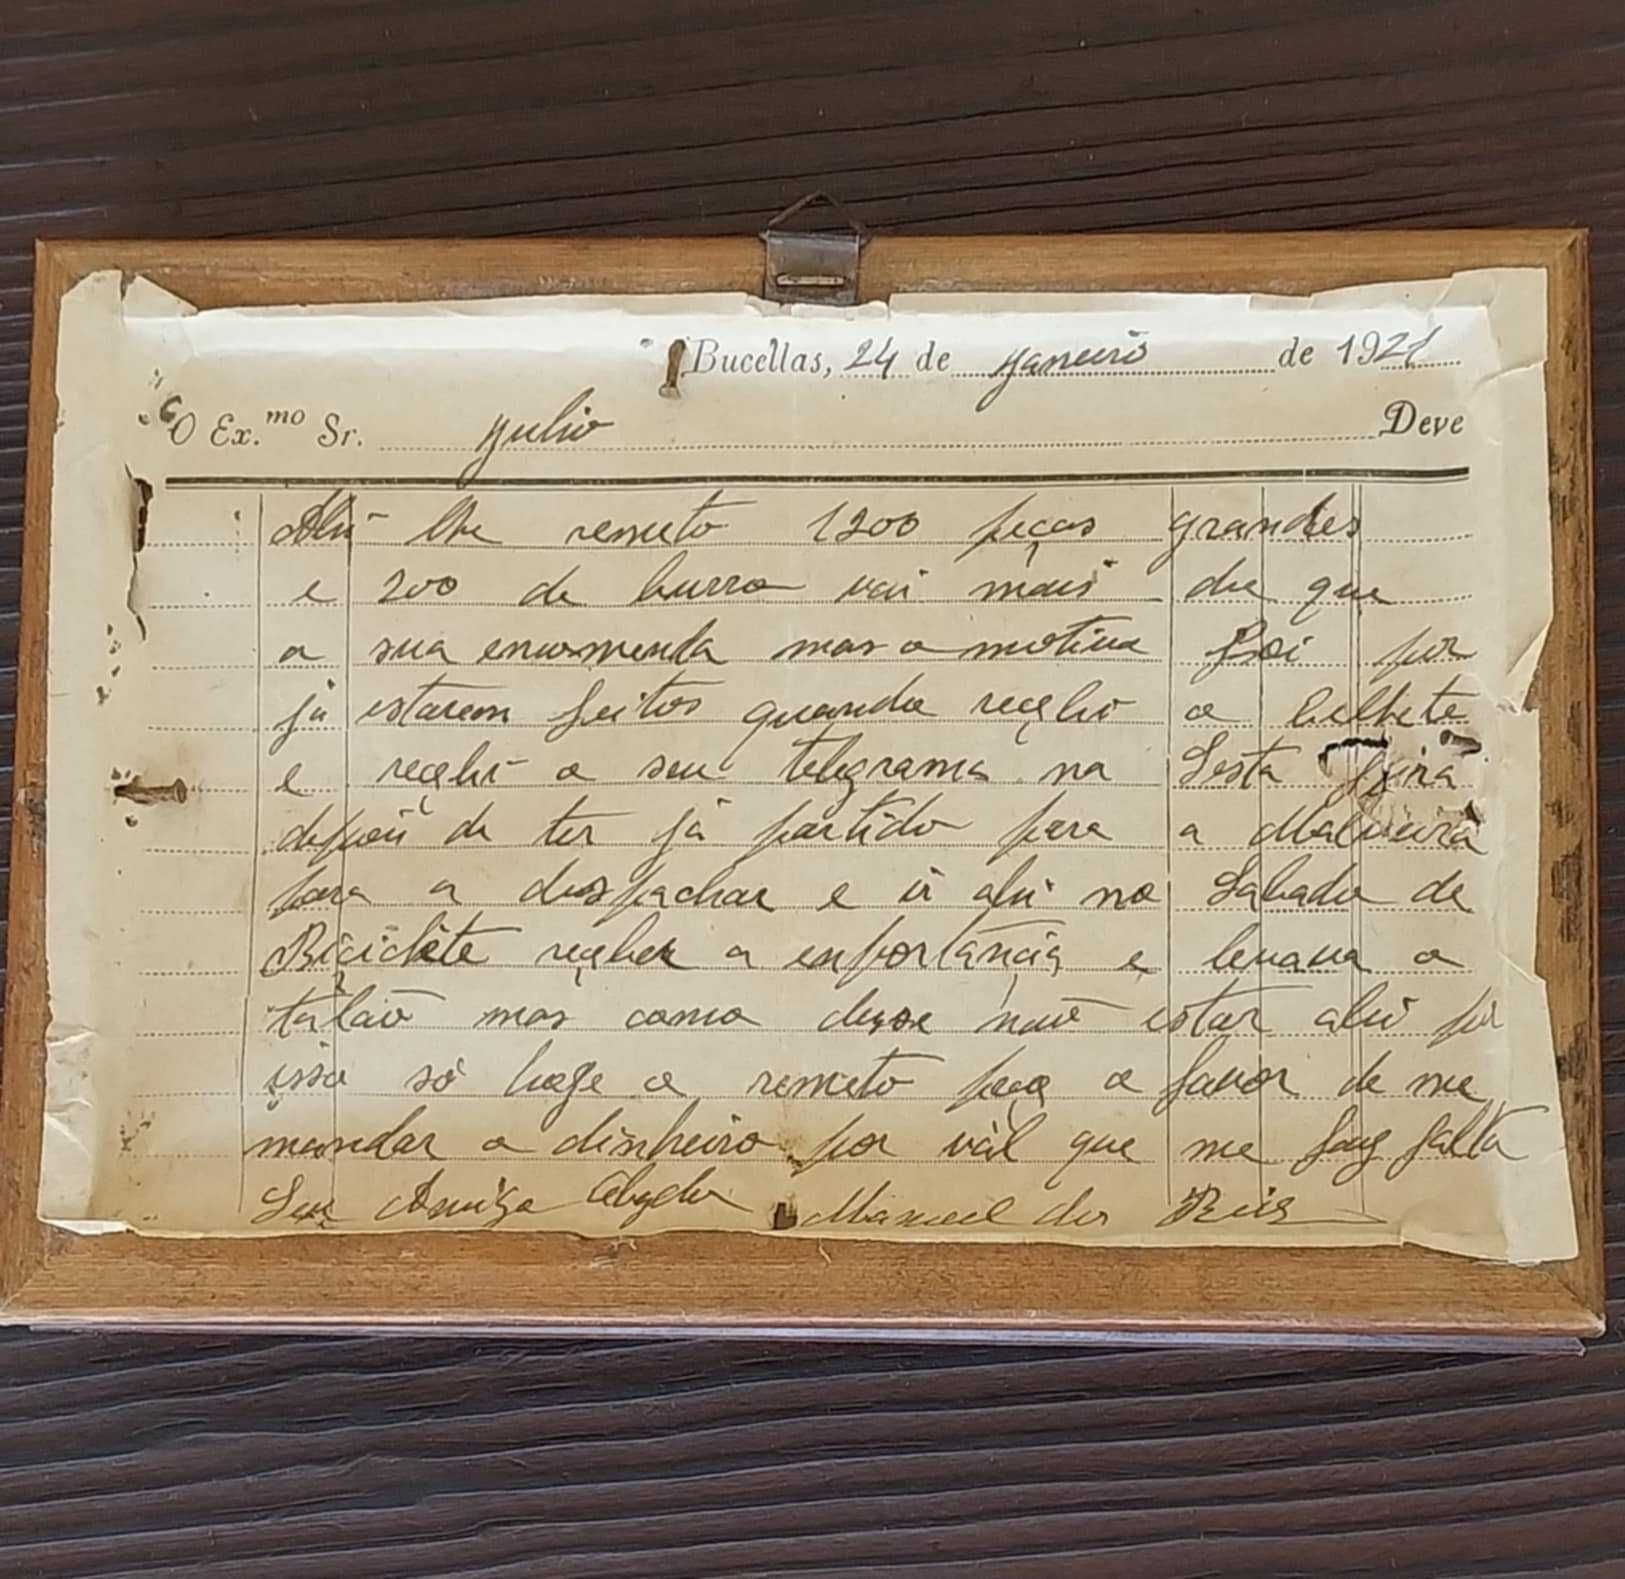 Bucellas, 24 de janeiro de 1921
O Ex.mo Sr. julio Deve
Ahi lhe remeto 1200 peças grandes
e 200 de burro vai mais do que
a sua encommenda mas o motivo foi por
já estarem feitos quando recebi o bilhete
e recebi o seu telegrama na Sesta Feira
depois de ter já partido para a Malveira
para a despachar e ir ahi no Sabado de
Biciclete receber a enportancia e levava o
talão mas como disse não estar ahi por
isso só hoje o remeto peço o favor de me
mandar o dinheiro por vál que me faz falta
Seu Amigo Manoel dos Reis